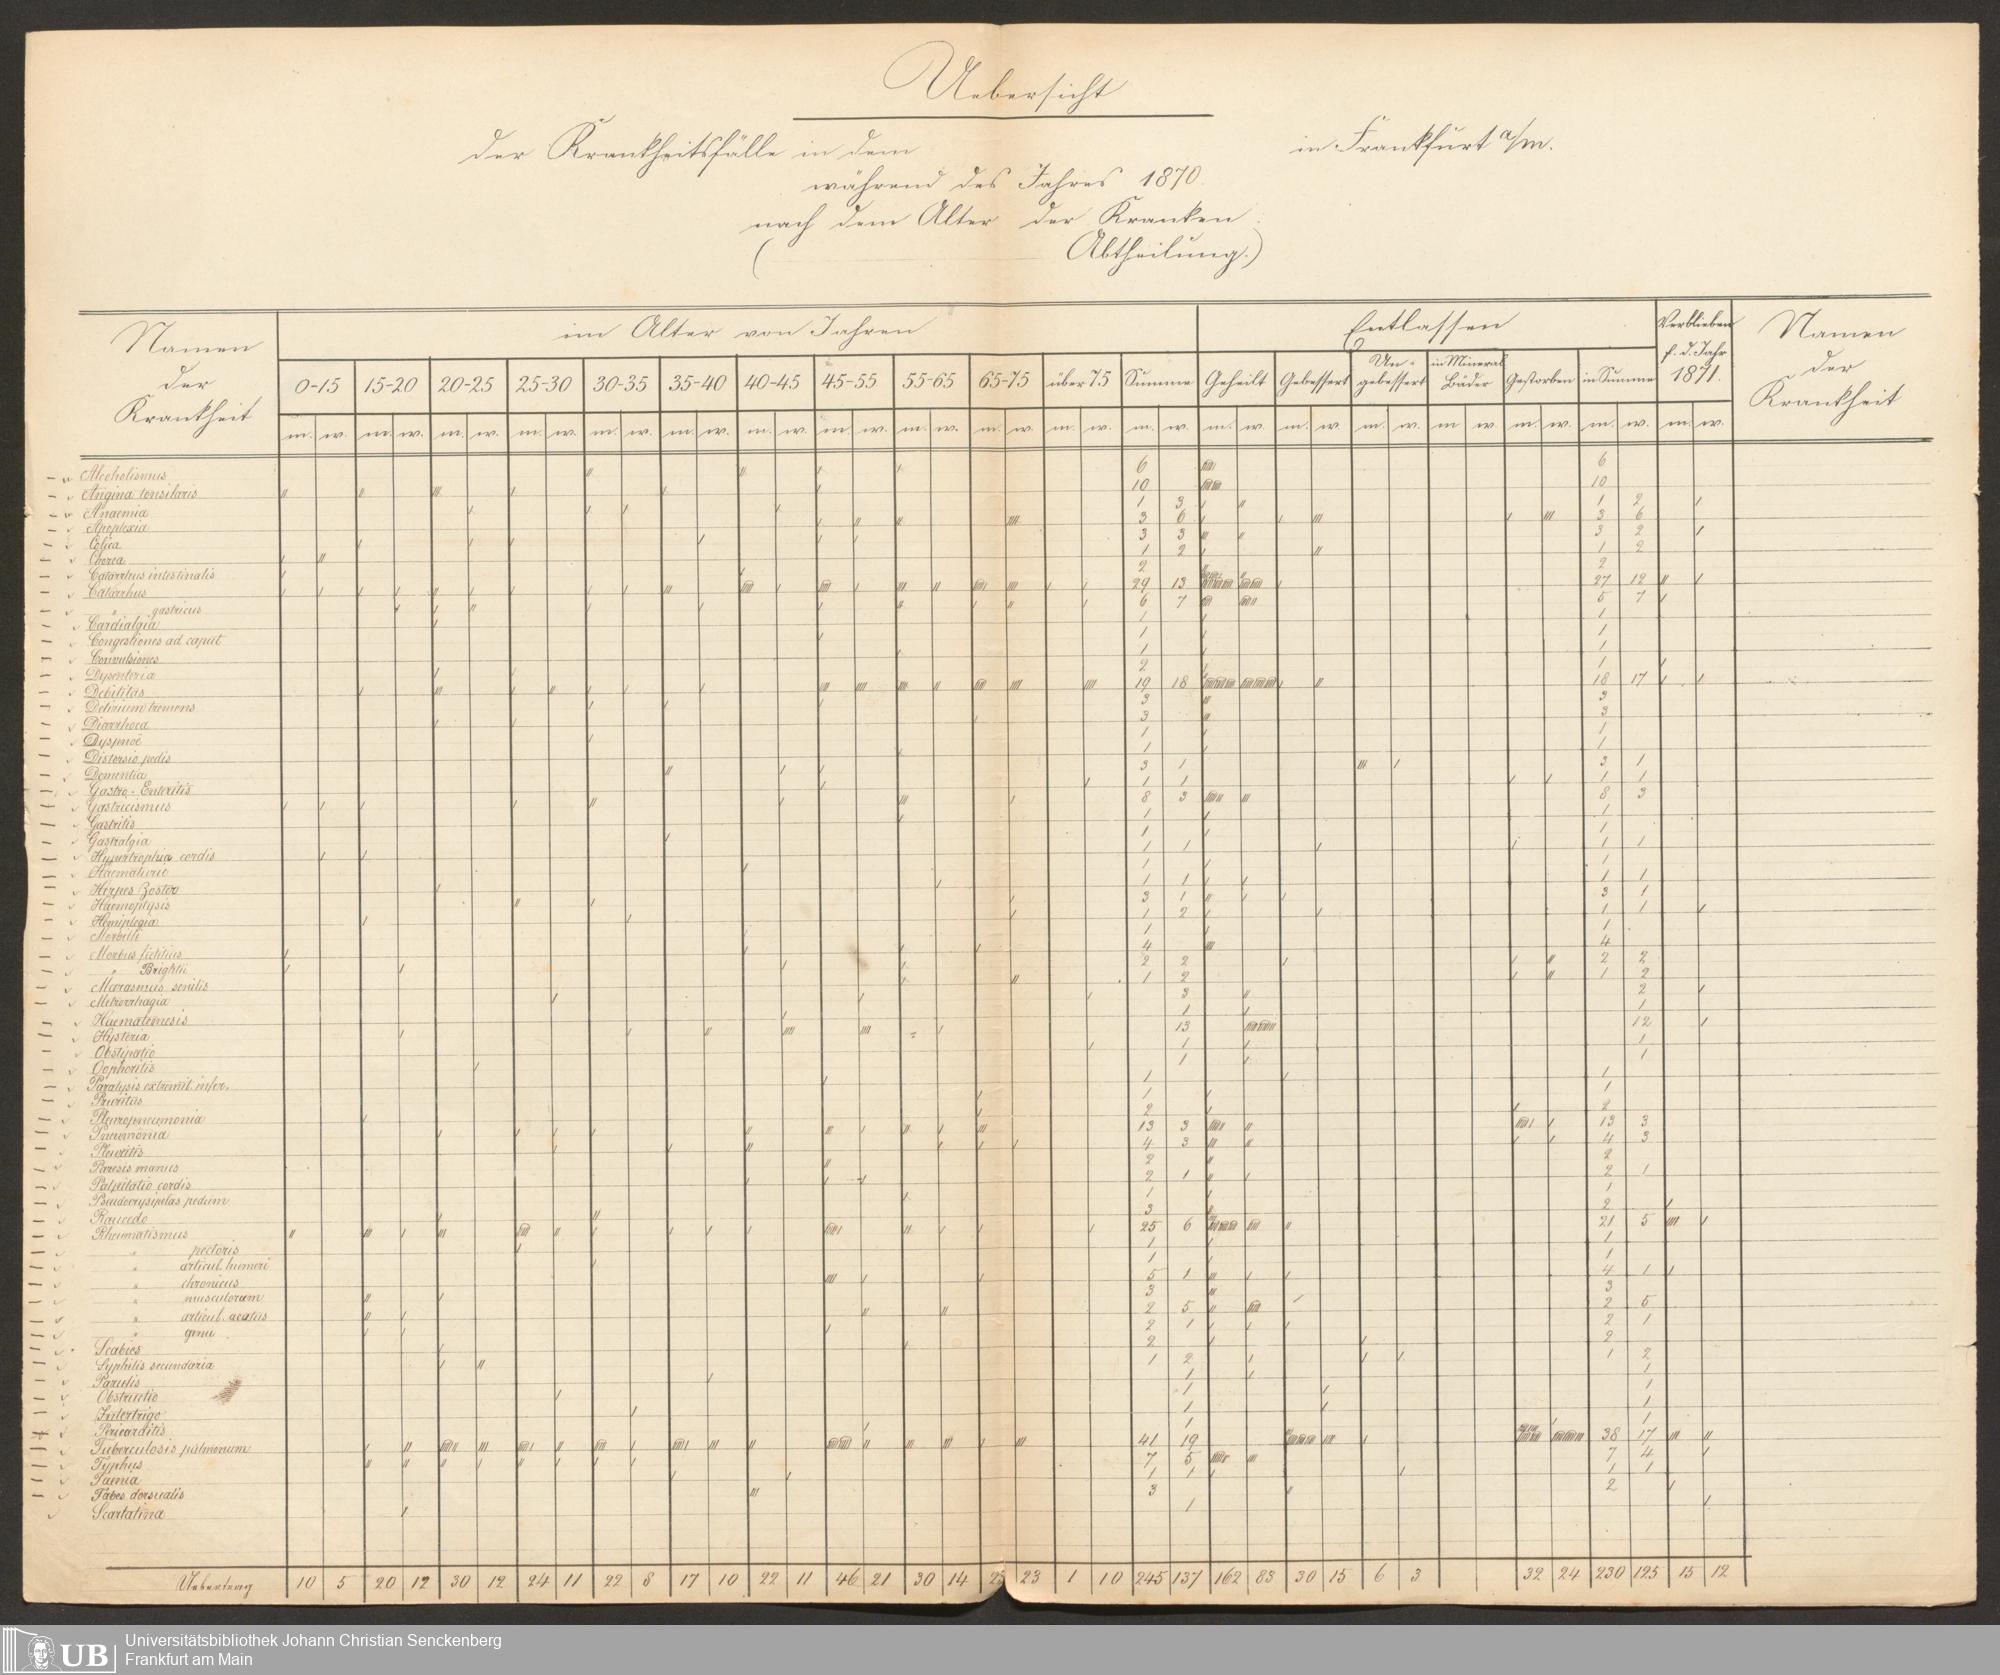 Uebersicht
der Krankheitsfälle in dem in Frankfurt a/m.
während des Jahres 1870.
nach dem Alter der Kranken
( Abtheilung.)
Namen der Krankheit
im Alter von Jahren
Entlassen
Verblieben f. d. Jahr 1871.
Namen der Krankheit
0-15 15-20 20-25 25-30 30-35 35-40 40-45 45-55 55-65 65-75 über 75 Summe Geheilt Gebessert Ungebessert in Mineral Bäder Gestorben in Summe
m. w. m. w. m. w. m. w. m. w. m. w. m. w. m. w. m. w. m. w. m. w. m. w. m. w. m. w. m. w. m w m. w. m. w. m. w.
Alcoholismus 6 6
Angina tonsilaris 10 10
Anaemia 1 3 1 2
Apoplexia 3 6 3 6
Colica 3 3 3 2
Chorea 1 2 1 2
Catarrhus intestinalis 2 2
Catarrhus 29 13 27 12
" gastricus 6 7 5 7
Cardialgia 1 1
Congestiones ad caput 1 1
Convulsiones 1 1
Dysenteria 2 1
Debilitas 19 18 18 17
Delirium tremens 3 3
Diarrhoea 3 3
Dyspnoë 1 1
Distorsio pedis 1 1
Dementia 3 1 3 1
Gastro-Enteritis 1 1 1 1
Gastricismus 8 3 8 3
Gastritis 1 1
Gastralgia 1 1
Hypertrophia cordis 1 1 1 1
Haematurie 1 1
Herpes Zoster 1 1 1 1
Haemoptysis 3 1 3 1
Hemiplegia 1 2 1 1
Morbilli 1 1
Morbus fictitius 4 4
" Brightii 2 2 2 2
Marasmus senilis 1 2 1 2
Metrorrhagia 3 2
Haematemesis 1 1
Hysteria 13 12
Obstipatio 1 1
Oophoritis 1 1
Paralysis extremit. infer. 1 1
Pruritus 1 1
Pleuropneumonia 2 2
Pneumonia 13 3 13 3
Pleuritis 4 3 4 3
Paresis manus 2 2
Palpitatio cordis 2 1 2 1
Pseudoerysipelas pedum 1 1
Raucedo 3 2
Rheumatismus 25 6 21 5
" pectoris 1 1
" articul. humeri 1 1
" chronicus 5 1 4 1
" musculorum 3 3
" articul. acutus 2 5 2 5
" genu 2 1 2 1
Scabies 2 2
Syphilis secundaria 1 2 1 2
Parulis 1 1
Obstructio 1 1
Intertrigo 1 1
Pericarditis 1 1
Tuberculosis pulmonum 41 19 38 17
Typhus 7 5 7 4
Taenia 1 1 1 1
Tabes dorsualis 3 2
Scarlatina 1
Uebertrag 10 5 20 12 30 12 24 11 22 8 17 10 22 11 46 21 30 14 23 1 10 245 137 162 83 30 15 6 3 32 24 230 125 15 12
UB Universitätsbibliothek Johann Christian Senckenberg
Frankfurt am Main